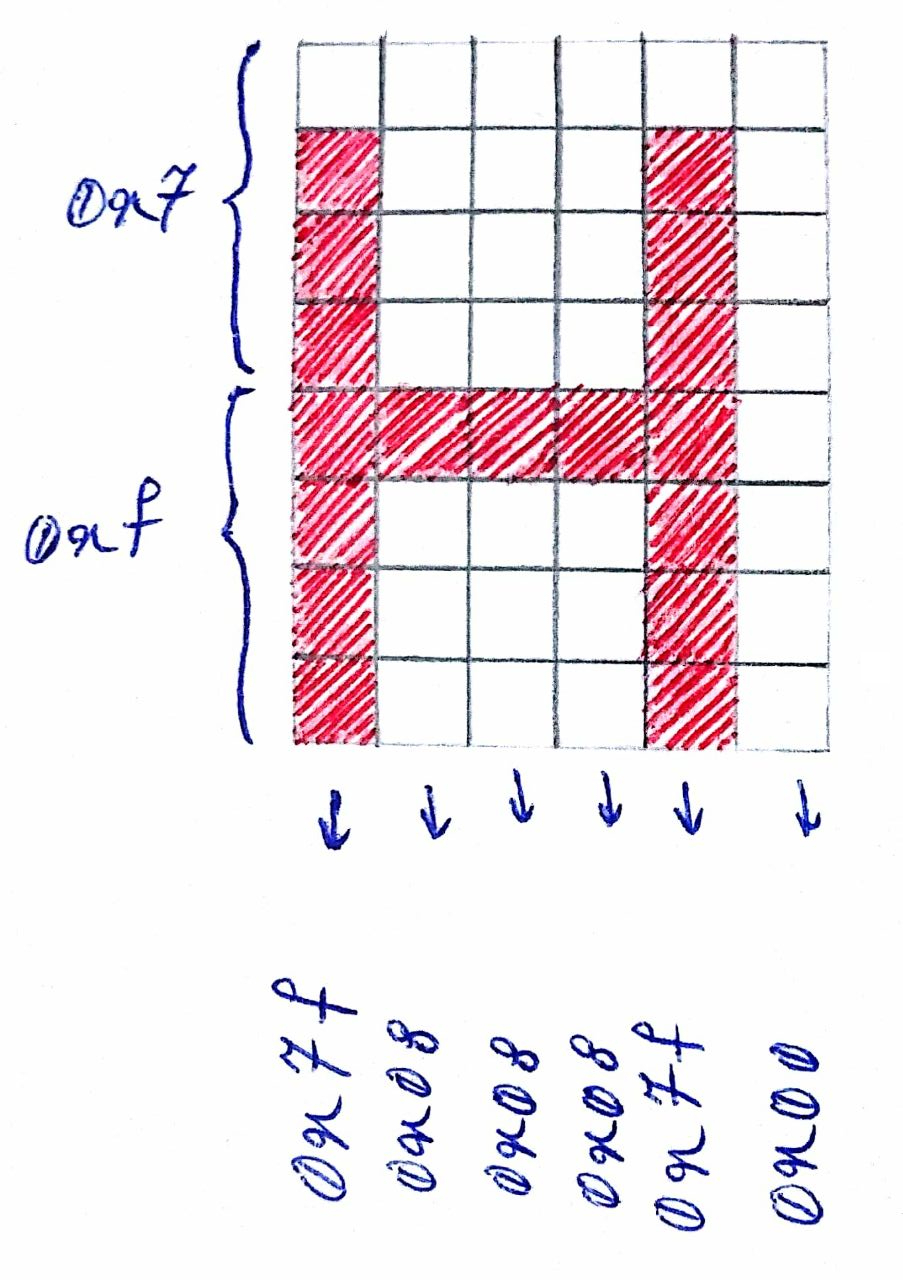 0x7
0xf
0x7f
0x08
0x08
0x08
0x7f
0x00